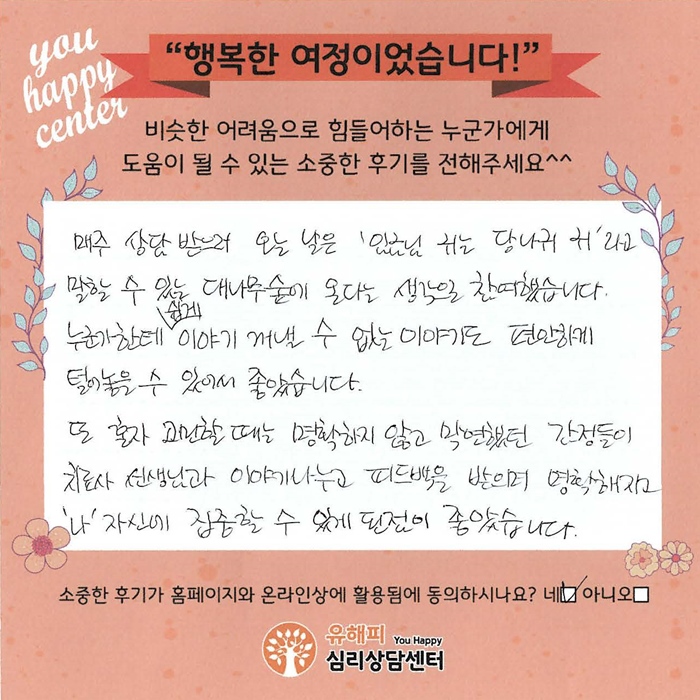 you
happy
center
“행복한 여정이었습니다!”
비슷한 어려움으로 힘들어하는 누군가에게
도움이 될 수 있는 소중한 후기를 전해주세요^^
매주 상담 받으러 오는 날은 '임금님 귀는 당나귀 귀'라고
말할 수 있는 대나무숲에 온다는 생각으로 참여했습니다.
누군가한테 쉽게 이야기 꺼낼 수 없는 이야기도 편안하게
털어놓을 수 있어서 좋았습니다.
또 혼자 고민할 때는 명확하지 않고 막연했던 감정들이
치료사 선생님과 이야기나누고 피드백을 받으며 명확해지고
'나' 자신에 집중할 수 있게 된점이 좋았습니다.
소중한 후기가 홈페이지와 온라인상에 활용됨에 동의하시나요? 네☑ 아니오☐
유해피 You Happy
심리상담센터